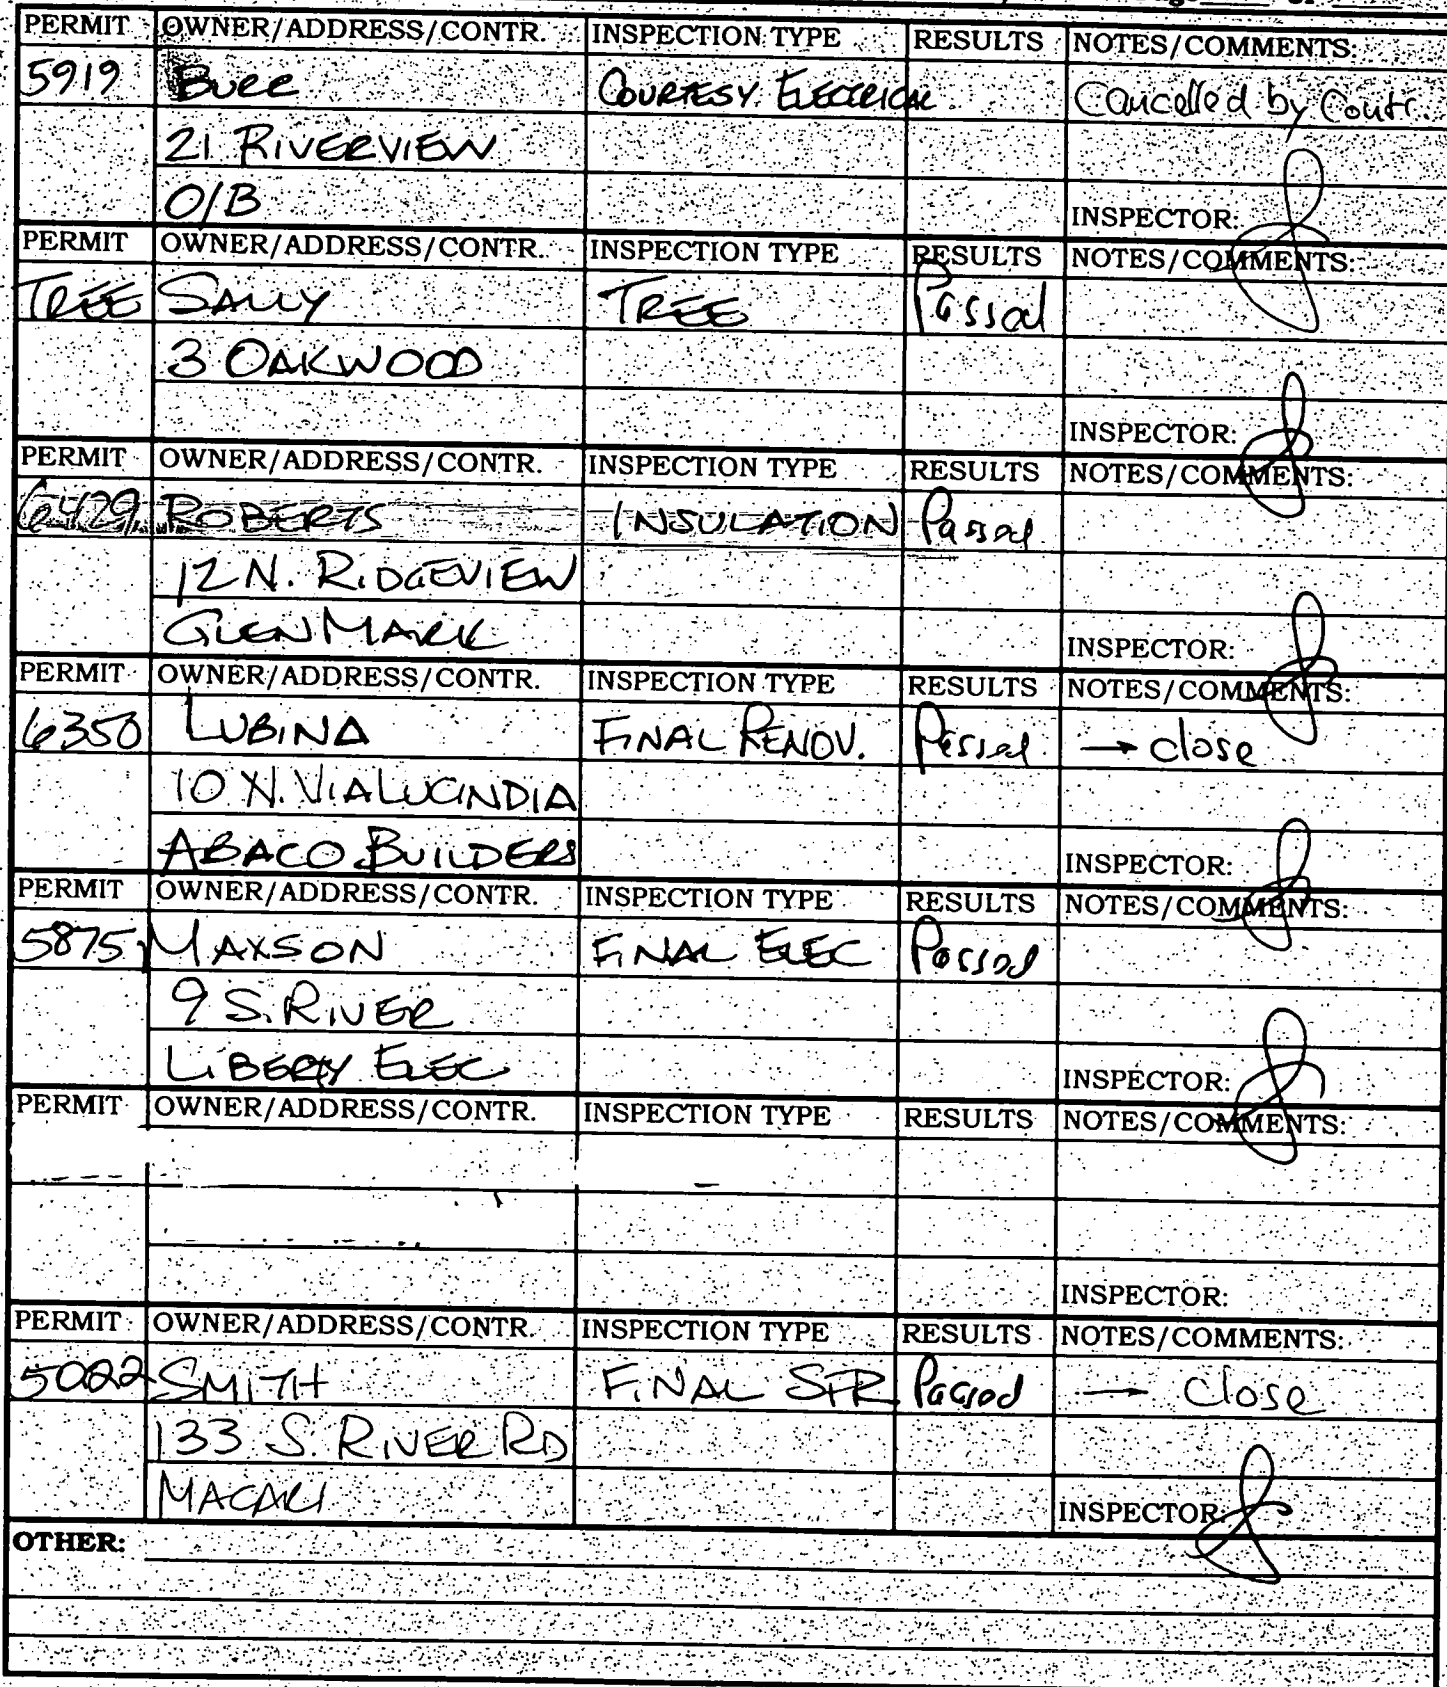 PERMIT OWNER/ADDRESS/CONTR. INSPECTION TYPE RESULTS NOTES/COMMENTS:
5919 Burr COURTESY ELECTRICAL Cancelled by Contr.
21 RIVERVIEW
O/B INSPECTOR:
PERMIT OWNER/ADDRESS/CONTR. INSPECTION TYPE RESULTS NOTES/COMMENTS:
TREE SALLY TREE Passed
3 OAKWOOD
INSPECTOR:
PERMIT OWNER/ADDRESS/CONTR. INSPECTION TYPE RESULTS NOTES/COMMENTS:
6429 ROBERTS INSULATION Passed
12 N. RIDGEVIEW
GLENMARK INSPECTOR:
PERMIT OWNER/ADDRESS/CONTR. INSPECTION TYPE RESULTS NOTES/COMMENTS:
6350 LUBINA FINAL RENOV. Passed → close
10 N. VIA LUCINDIA
ABACO BUILDERS INSPECTOR:
PERMIT OWNER/ADDRESS/CONTR. INSPECTION TYPE RESULTS NOTES/COMMENTS:
5875 MAXSON FINAL ELEC Passed
9 S. RIVER
LIBERTY ELEC INSPECTOR:
PERMIT OWNER/ADDRESS/CONTR. INSPECTION TYPE RESULTS NOTES/COMMENTS:
INSPECTOR:
PERMIT OWNER/ADDRESS/CONTR. INSPECTION TYPE RESULTS NOTES/COMMENTS:
SMITH FINAL SFR Passed → Close
133 S. RIVER RD
INSPECTOR:
OTHER: